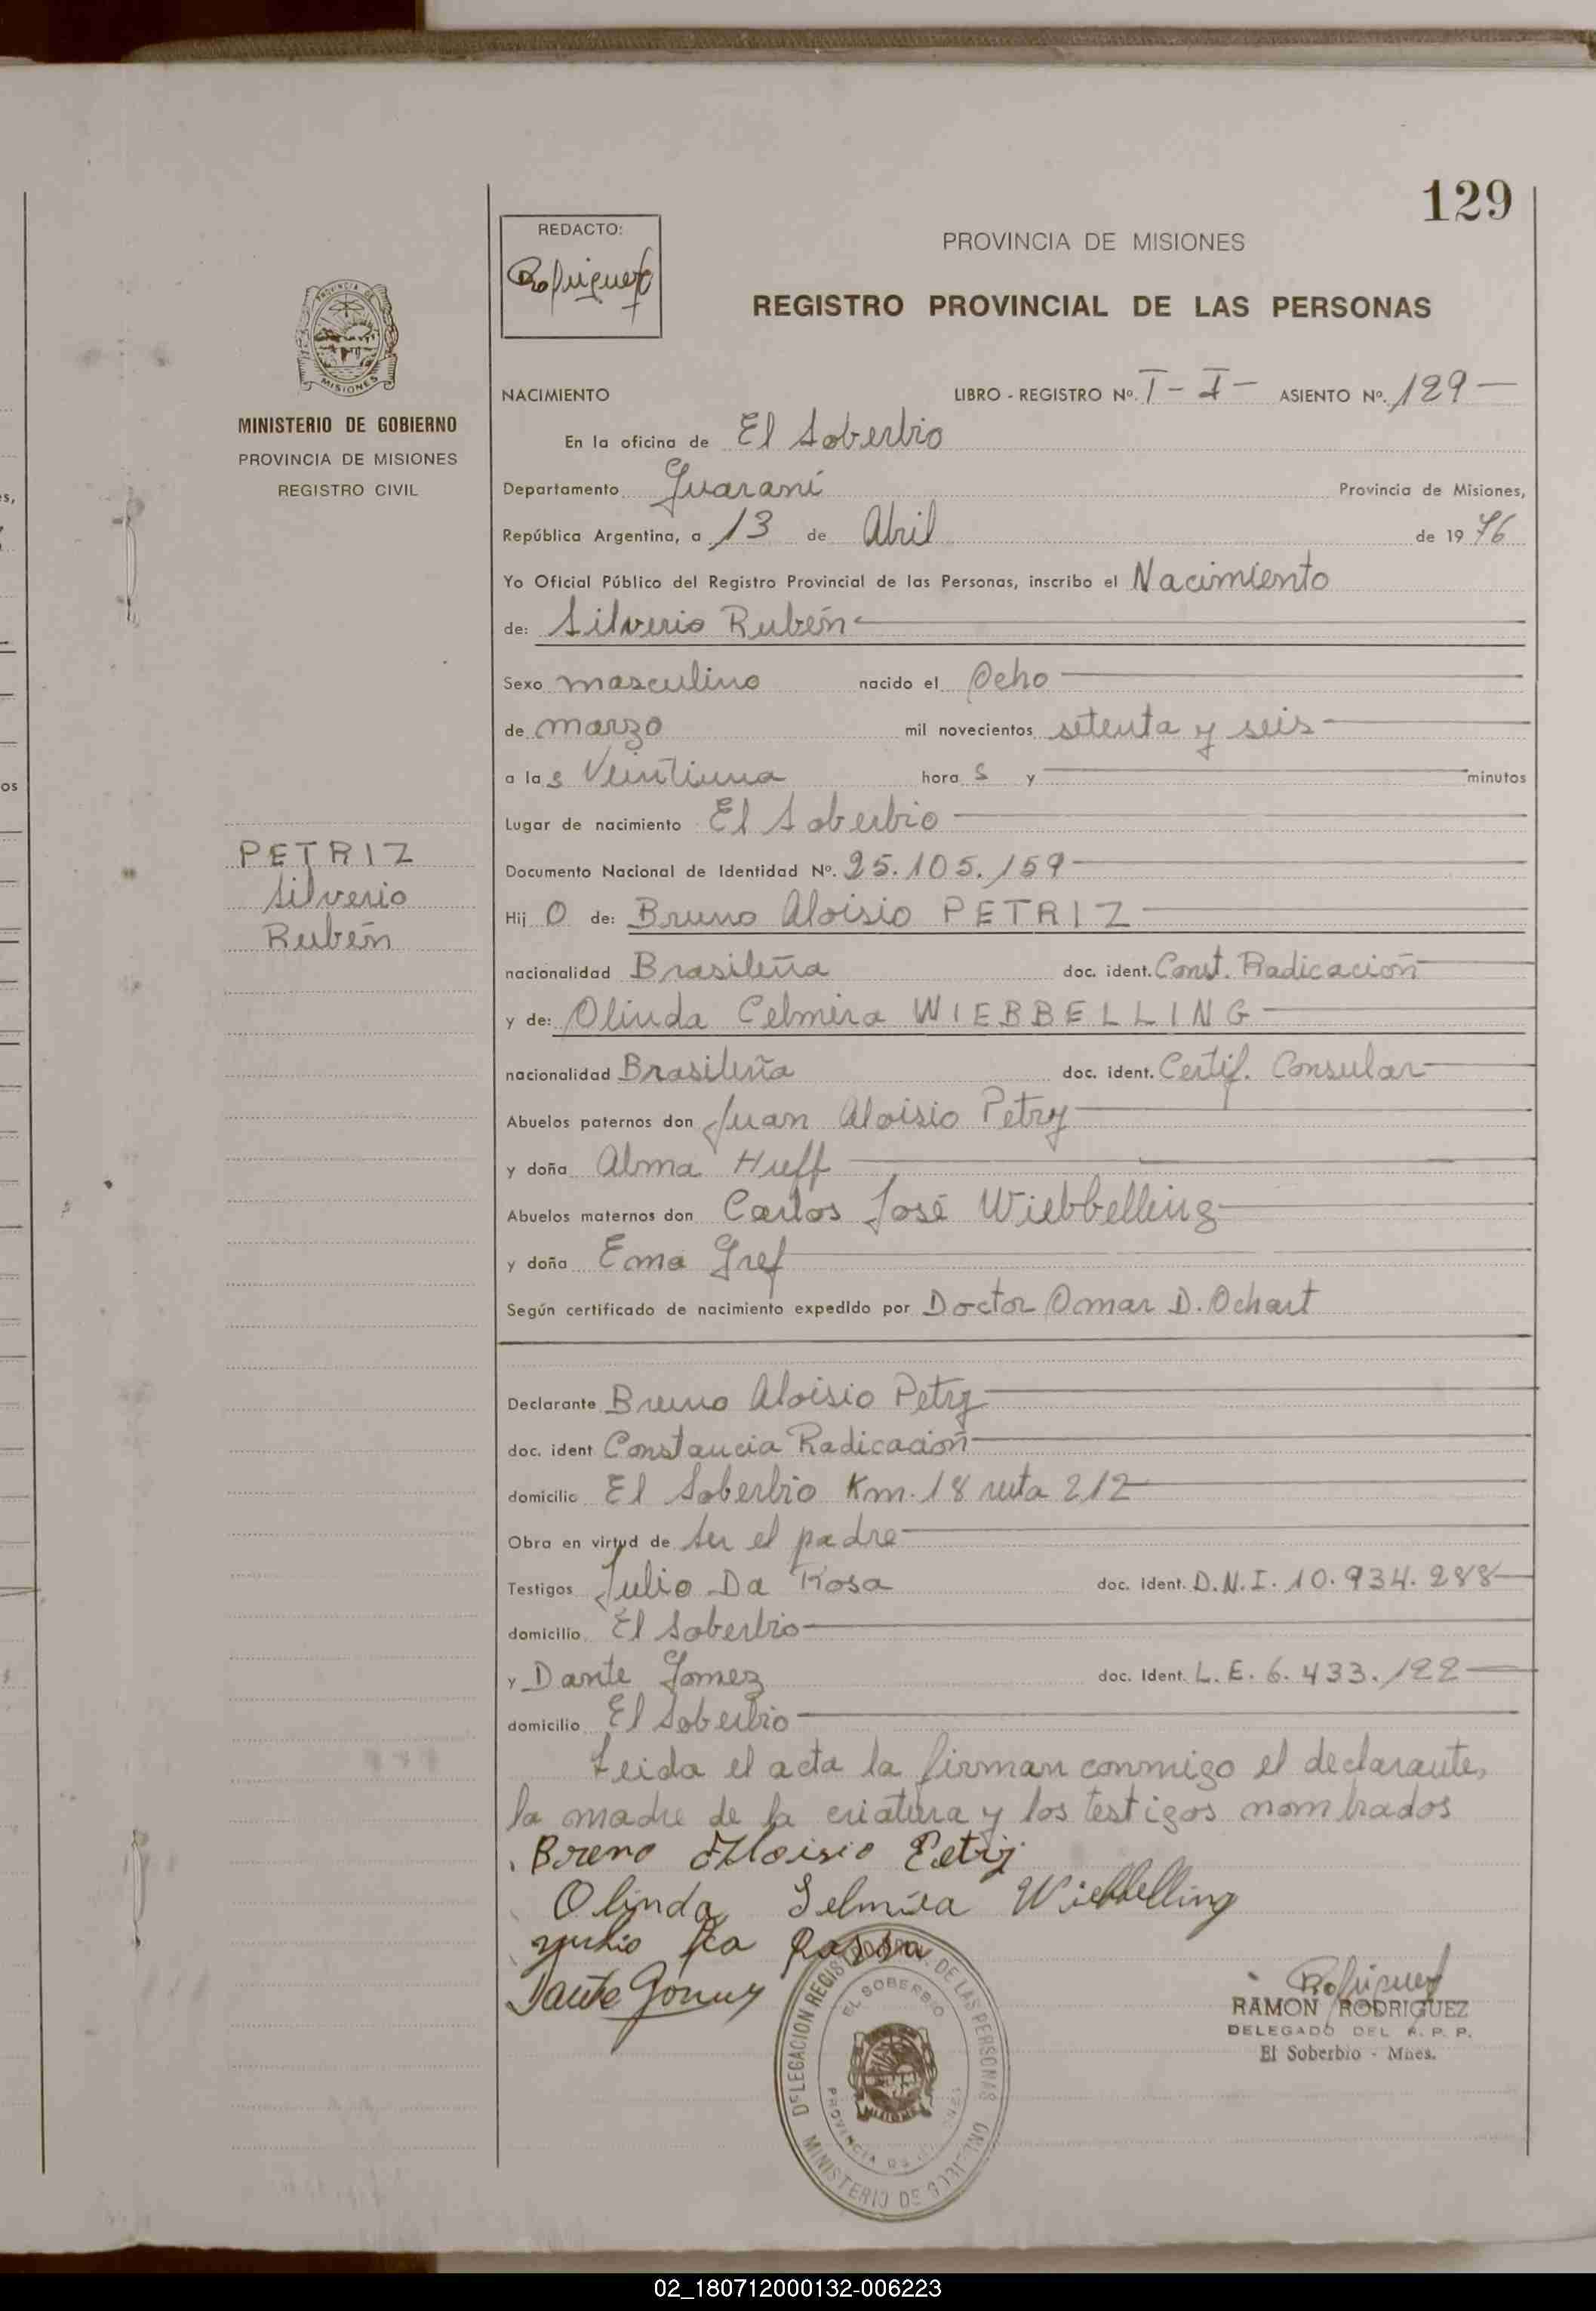 129
REDACTO:
Rodriguez
PROVINCIA DE MISIONES
REGISTRO PROVINCIAL DE LAS PERSONAS
PROVINCIA DE
MISIONES
MINISTERIO DE GOBIERNO
PROVINCIA DE MISIONES
REGISTRO CIVIL
PETRIZ
Silverio
Rubén
NACIMIENTO LIBRO - REGISTRO Nº. I - I - ASIENTO Nº. 129
En la oficina de El Soberbio
Departamento Guaraní Provincia de Misiones,
República Argentina, a 13 de Abril de 1976
Yo Oficial Público del Registro Provincial de las Personas, inscribo el Nacimiento
de: Silverio Rubén
Sexo masculino nacido el Ocho
de marzo mil novecientos setenta y seis
a las Veintiuna horas y minutos
Lugar de nacimiento El Soberbio
Documento Nacional de Identidad Nº. 25.105.159
Hijo de: Bruno Aloisio PETRIZ
nacionalidad Brasileña doc. ident. Const. Radicación
y de: Olinda Celmira WIEBBELLING
nacionalidad Brasileña doc. ident. Certif. Consular
Abuelos paternos don Juan Aloisio Petry
y doña Alma Huff
Abuelos maternos don Carlos José Wiebbelling
y doña Ema Gref
Según certificado de nacimiento expedido por Doctor Omar D. Ochart
Declarante Bruno Aloisio Petry
doc. ident Constancia Radicación
domicilio El Soberbio Km. 18 ruta 212
Obra en virtud de ser el padre
Testigos Julio Da Rosa doc. ident. D.N.I. 10.934.288
domicilio El Soberbio
y Dante Gomez doc. Ident. L.E. 6.433.122
domicilio El Soberbio
Leida el acta la firman conmigo el declarante,
la madre de la criatura y los testigos nombrados
Breno Aloisio Petry
Olinda Selmira Wiebbelling
Dante Gomez
DELEGACION REGISTRO PROV. DE LAS PERSONAS
EL SOBERBIO
PROVINCIA DE
MISIONES
MINISTERIO DE
Rodriguez
RAMON RODRIGUEZ
DELEGADO DEL R. P. P.
El Soberbio - Mnes.
02_180712000132-006223